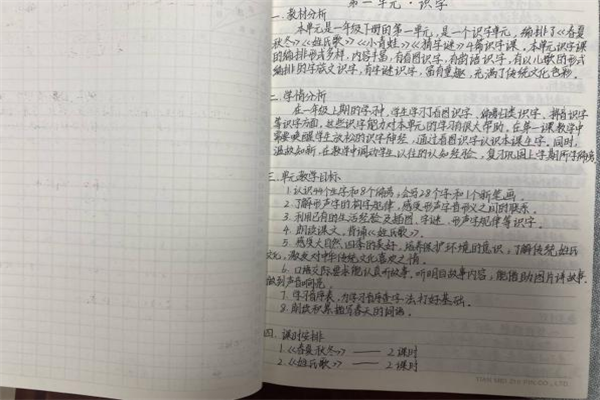 第一单元·识字
一、教材分析
本单元是一年级下册的第一单元,是一个识字单元,编排了《春夏
秋冬》《姓氏歌》《小青蛙》《猜字谜》4篇识字课,本单元识字课
的编排形式多样,内容丰富,有看图识字,有韵语识字,有以儿歌的形式
编排的字族文识字,有字谜识字,富有童趣,充满了传统文化色彩。
二、学情分析
在一年级上期的学习中,学生学习了看图识字、偏旁归类识字、拼音识字
等识字方法,这些识字能力对本单元的学习有很大帮助,在第一课教学中
需要唤醒学生放松的识字神经,通过看图识字认识本课生字。同时,
温故知新,在教学中调动学生以往的认知经验,复习巩固上学期所学
三、单元教学目标
1.认识44个生字和8个偏旁,会写28个字和1个新笔画。
2.了解形声字的构字规律,感受形声字音形义之间的联系。
3.利用已有的生活经验及插图、字谜、形声字规律等识字。
4.朗读课文,背诵《姓氏歌》。
5.感受大自然四季的美好,培养保护环境的意识,了解传统姓氏
文化,激发对中华传统文化喜爱之情。
6.口语交际要求能认真听故事,听明白故事内容,能借助图片讲故事,
做到声音响亮。
7.学习音序表,为学习音序查字法打好基础。
8.朗读积累描写春天的词语。
四、课时安排
1.《春夏秋冬》——2课时
2.《姓氏歌》——2课时